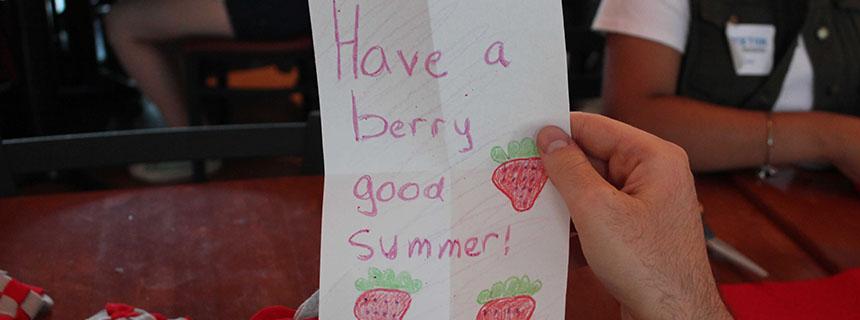 Have a
berry
good
summer!